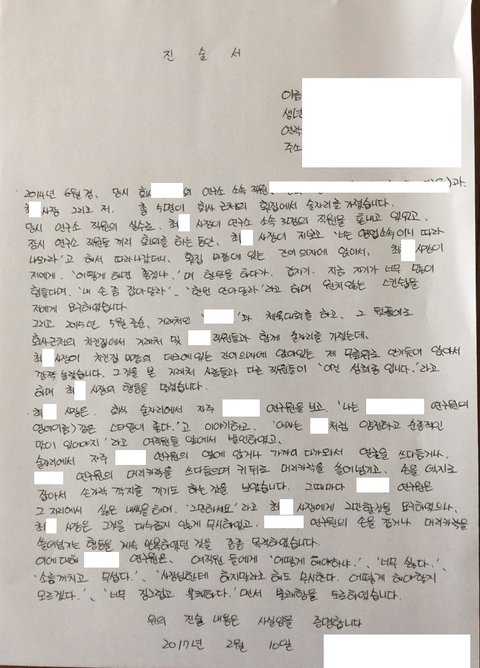 진 술 서
이름
생년
연락
주소
2014년 6월경, 당시 회사 의 연구소 소속 직원, 과
최 사장 그리고 저. 총 5명이 회사 근처의 횟집에서 술자리를 가졌습니다.
당시 연구소 직원의 실수로 최 사장이 연구소 소속 3명의 직원을 혼내고 있었고,
잠시 연구소 직원들 끼리 회의를 하는동안, 최 사장이 저보고 '너는 영업소속이니 따라
나와라'고 해서 따라나갔더니, 횟집 마당에 있는 간이 의자에 앉아서, 최 사장이
저에게. '어떻게 하면 좋겠냐.'며 한탄을 하다가. 갑자기. 지금 자기가 너무 많이
힘들다며. '내 손 좀 잡아달라'. '한번 안아달라'라고 하며 원치않는 스킨쉽을
저에게 요구하였습니다.
그리고 2015년 5월 중순, 거래처인 ' '과 체육대회를 하고, 그 뒤풀이로
회사근처의 치킨집에서 거래처 및 직원들과 함께 술자리를 가졌는데,
최 사장이 치킨집 바깥의 테라스에 있는 간이의자에 앉아있는 제 무릎위로 안기듯이 앉아서
깜짝 놀랐습니다. 그것을 본 거래처 사람들과 다른 직원들이 '이건 성희롱 입니다.'라고
하며 최 사장의 행동을 말렸습니다.
최 사장은. 회식 술자리에서 자주 연구원을 보고, '나는 연구원의
영어이름)같은 스타일이 좋다.'고 이야기하고, '여자는 처럼 얌전하고 순종적인
맛이 있어야지'라고 여직원들 앞에서 발언하였고,
술자리에서 자주 연구원의 옆에 앉거나 가까이 다가와서 얼굴을 쓰다듬거나,
연구원의 머리카락을 쓰다듬으며 귀 뒤로 머리카락을 쓸어넘기고, 손을 억지로
잡아서 손가락 깍지를 끼기도 하는것을 보았습니다. 그때마다 연구원은
그 자리에서 싫은 내색을 하며, '그만하세요'라고 최 사장에게 그만할것을 요구하였으나,
최 사장은 그것을 대수롭지 않게 무시하였고. 연구원의 손을 잡거나 머리카락을
쓸어넘기는 행동을 계속 반복하였던 것을 종종 목격하였습니다.
이에 대해 연구원은, 여직원 들에게 '어떻게 해야하냐.'. '너무 싫다.'.
'소름끼치고 무섭다.'. '사장님한테 하지말라고 해도 무시한다. 어떻게 해야할지
모르겠다.'. '너무 징그럽고 불쾌하다.'면서 불쾌함을 토로하였습니다.
위의 진술 내용은 사실임을 증명합니다
2017년 2월 10일